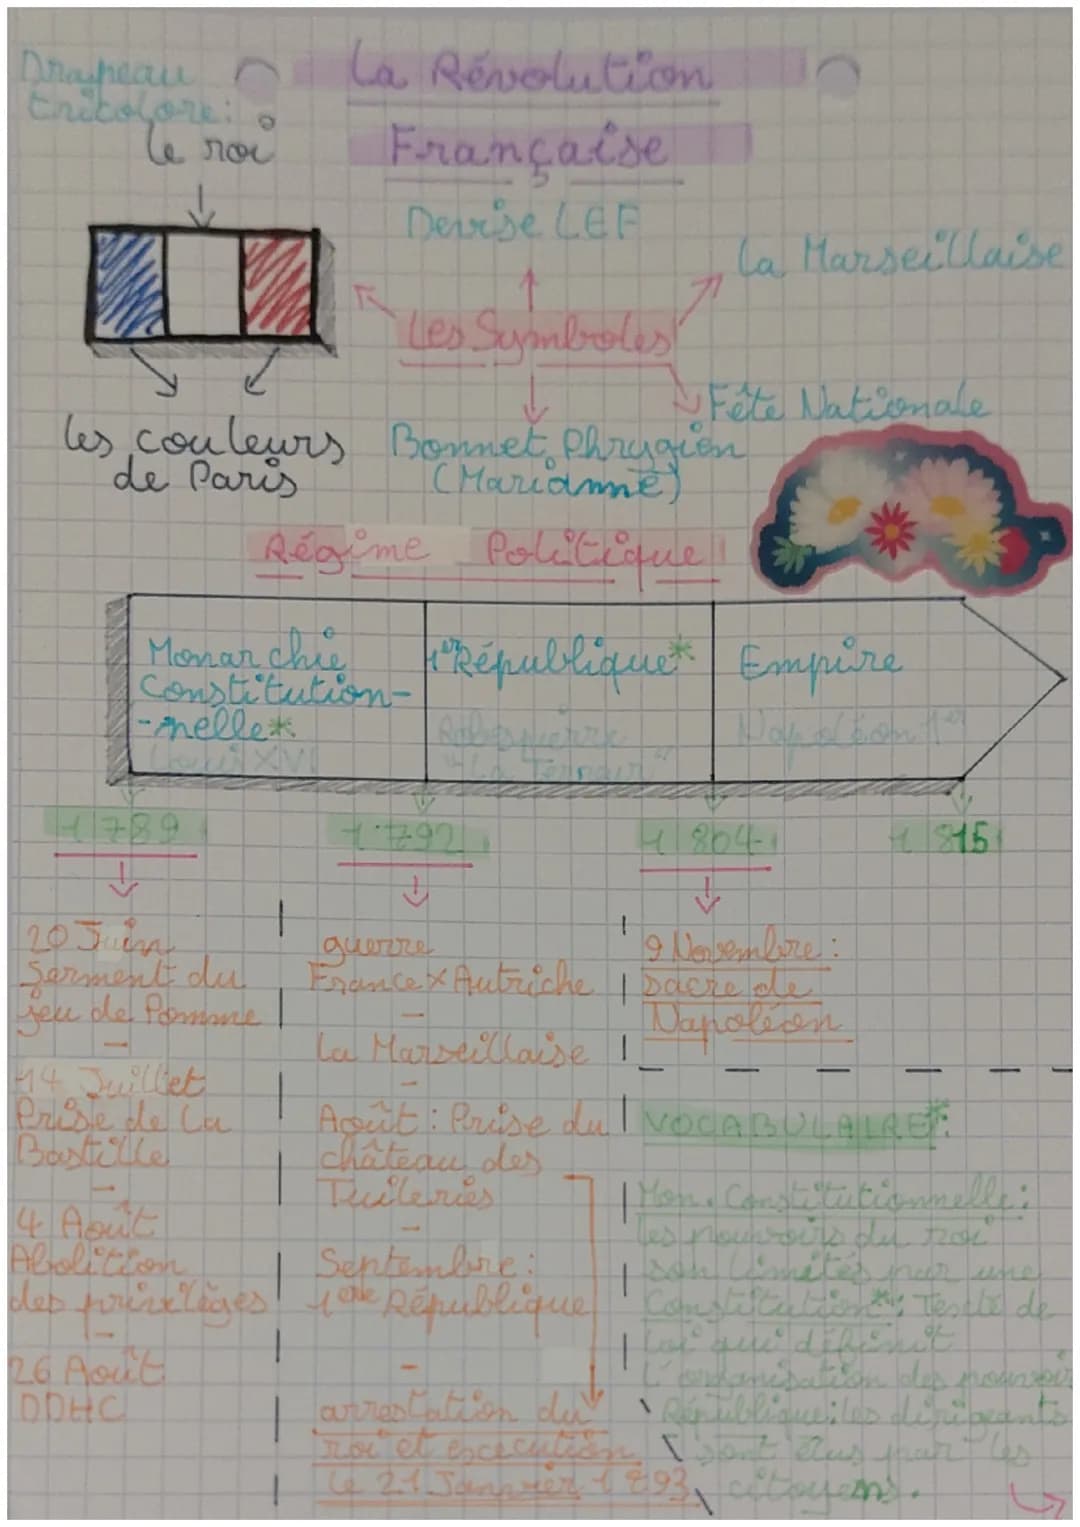 La Révolution
Française
Drapeau
tricolore:
le roi
les couleurs
de Paris
Devise LEF
La Marseillaise
Les Symboles
Fête Nationale
Bonnet Phrygien
(Marianne)
Régime Politique
Monarchie
Constitution-
-nelle*
Louis XVI
1ère République*
Robespierre
"La Terreur"
Empire
Napoléon 1er
1789
1792
1804
1815
20 Juin
serment du
jeu de Pomme
-
14 Juillet
Prise de la
Bastille
-
4 Août
Abolition
des privilèges
-
26 Août
DDHC
guerre
France x Autriche
-
La Marseillaise
-
Août : Prise du
château des
Tuileries
-
Septembre :
1ère République
-
arrestation du
roi et excécution
le 21 Janvier 1893
9 Novembre :
sacre de
Napoléon
VOCABULAIRE*:
Mon. Constitutionnelle:
les pouvoirs du roi
son limités par une
Constitution*: Texte de
loi qui définit
l'organisation des pouvoir
République: les dirigeants
sont élus par les
citoyens.